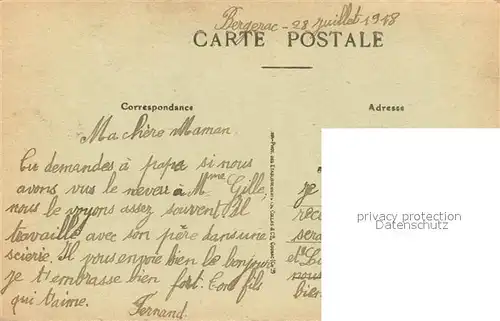 Bergerac - 28 juillet 1918
CARTE POSTALE
Correspondance
Adresse
Ma chère Maman
Tu demandes à papa si nous
avons vus le neveu à Mme Gille,
nous le voyons assez souvent. Il
travaille avec son père dans une
scierie. Il vous envoie bien le bonjour
je t'embrasse bien fort. Ton fils
qui t'aime.
Fernand
je
rec
sera
et
nous
bien
privacy protection
Datenschutz